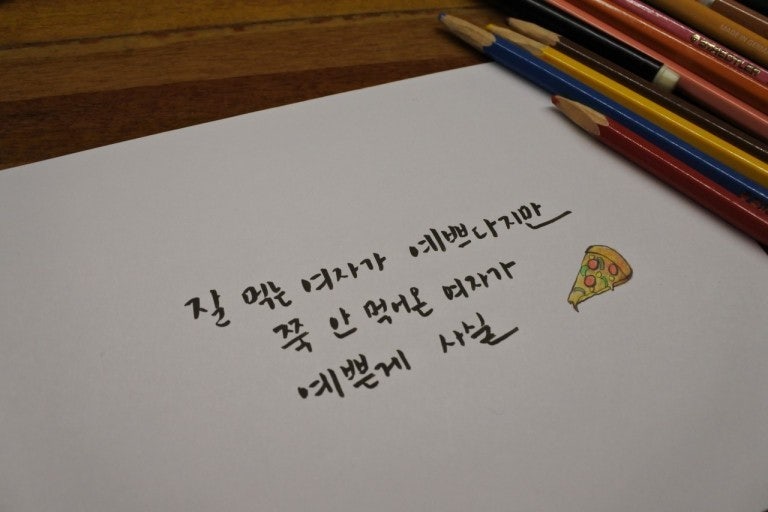 잘 먹는 여자가 예쁘다지만
쭉 안 먹어온 여자가
예쁜게 사실
MADE IN GERMANY
STAEDTLER